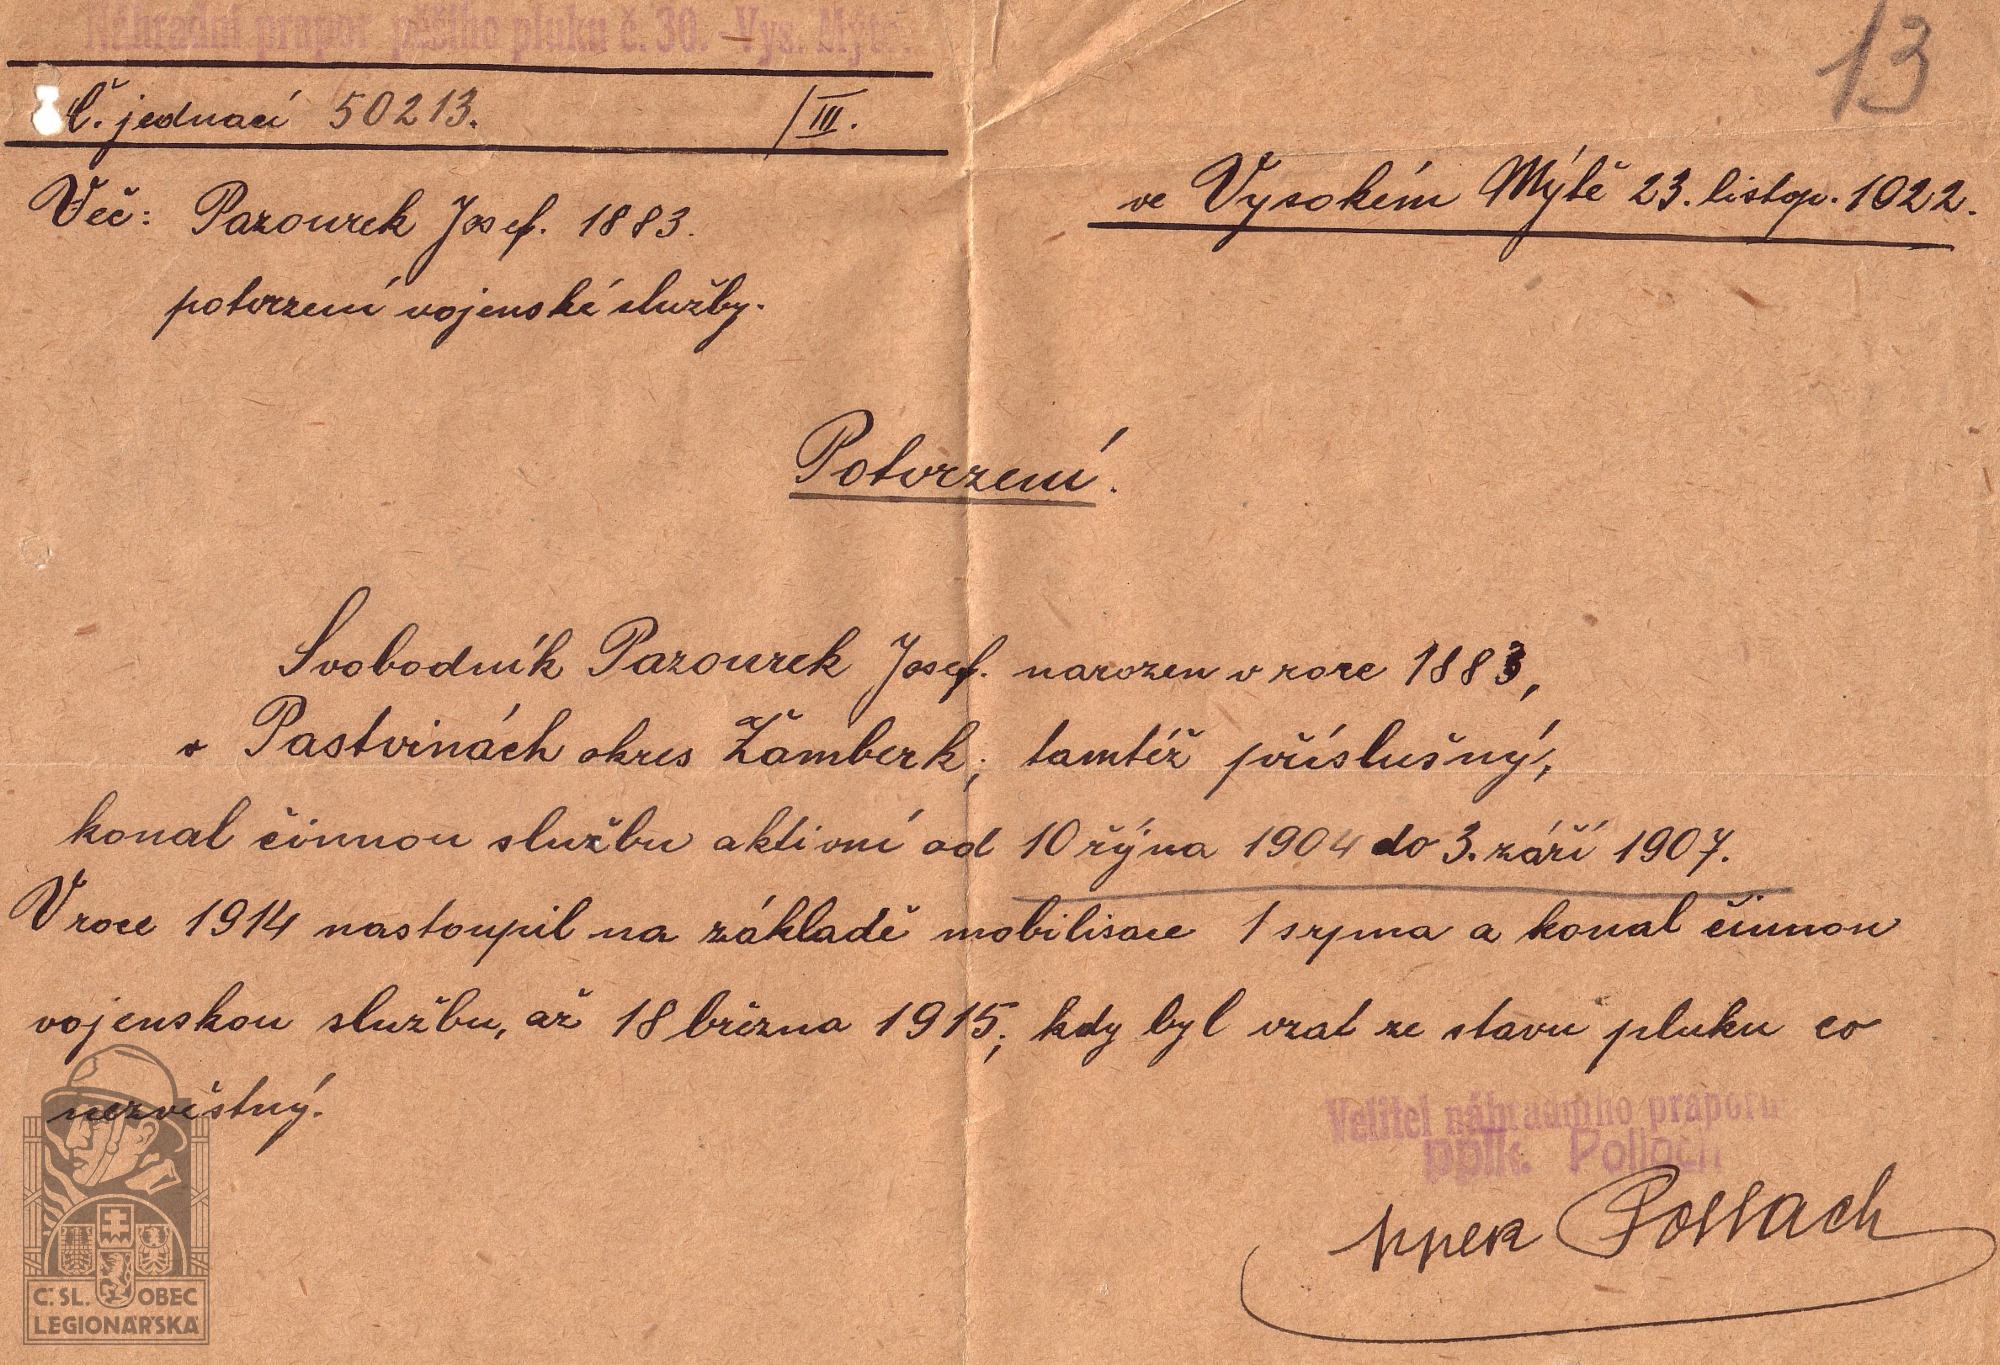 Náhradní prapor pěšího pluku č. 30. - Vys. Mýto.
13
Č. jednací 50213. /III.
ve Vysokém Mýtě 23. listop. 1922.
Věc: Pazourek Josef. 1883.
potvrzení vojenské služby.
Potvrzení.
Svobodník Pazourek Josef. narozen v roce 1883,
v Pastvinách okres Žamberk; tamtéž příslušný,
konal činnou službu aktivní od 10 října 1904 do 3. září 1907.
V roce 1914 nastoupil na základě mobilisace 1 srpna a konal činnou
vojenskou službu, až 18 března 1915; kdy byl vzat ze stavu pluku co
nezvěstný.
Velitel náhradního praporu
pplk. Pollach
Pollach
Č. SL. OBEC
LEGIONÁŘSKÁ